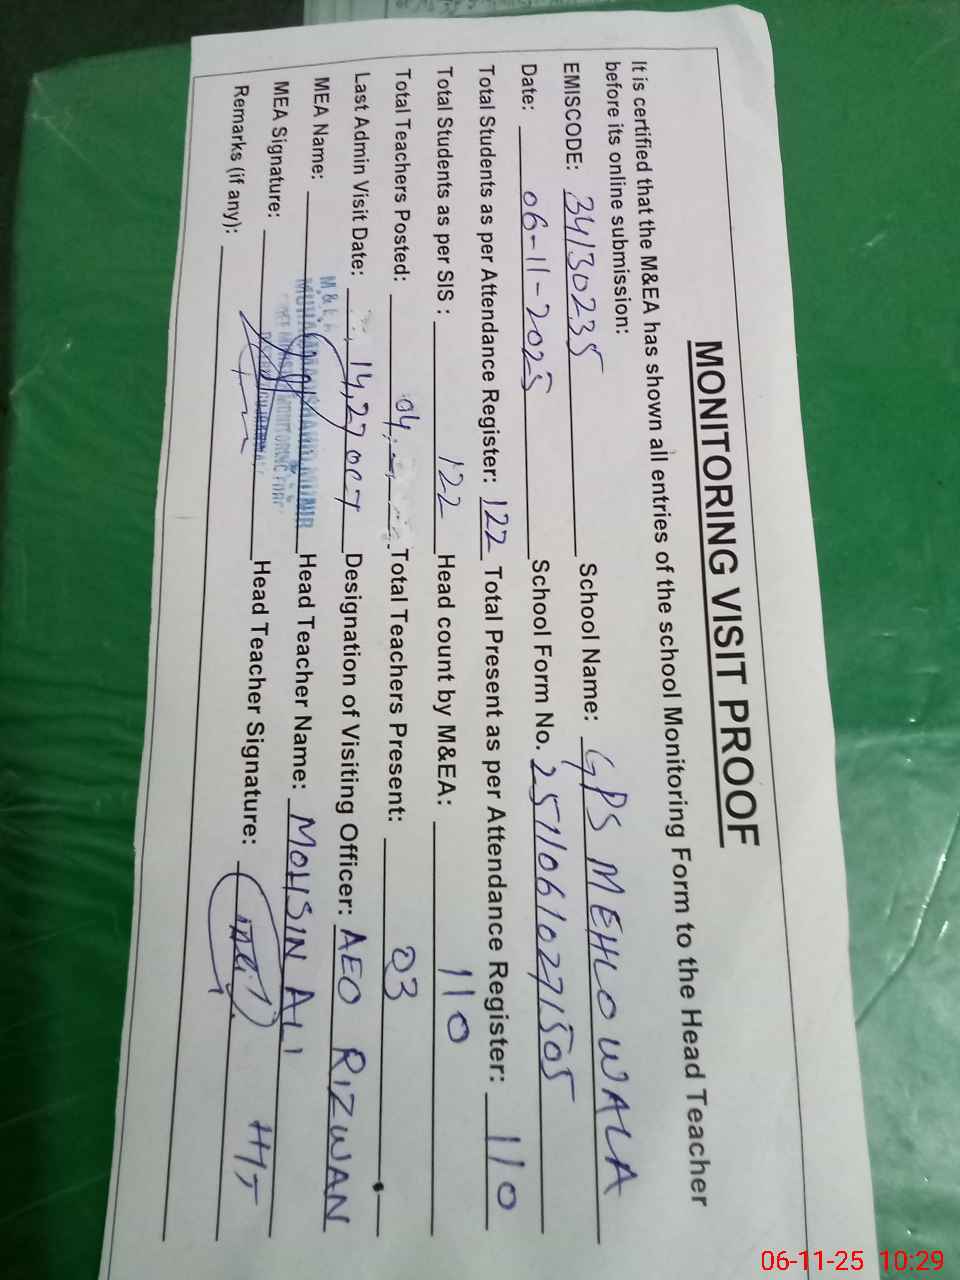 MONITORING VISIT PROOF
It is certified that the M&EA has shown all entries of the school Monitoring Form to the Head Teacher
before its online submission:
EMISCODE: 34130235 School Name: GPS MEHLOWALA
Date: 06-11-2025 School Form No. 25110610271505
Total Students as per Attendance Register: 122 Total Present as per Attendance Register: 110
Total Students as per SIS: 122 Head count by M&EA: 110
Total Teachers Posted: 04 Total Teachers Present: 03
Last Admin Visit Date: 14,27 OCT Designation of Visiting Officer: AEO RIZWAN
MEA Name: Head Teacher Name: MOHSIN ALI
MEA Signature: Head Teacher Signature: HT
Remarks (if any):
06-11-25 10:29